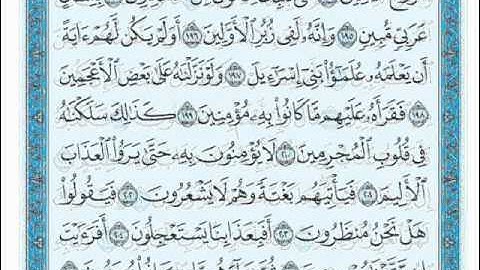 عَرَبِيٍّ مُّبِينٍ ١٩٥ وَإِنَّهُۥ لَفِى زُبُرِ ٱلْأَوَّلِينَ ١٩٦ أَوَلَمْ يَكُن لَّهُمْ ءَايَةً
أَن يَعْلَمَهُۥ عُلَمَٰٓؤُا۟ بَنِىٓ إِسْرَٰٓءِيلَ ١٩٧ وَلَوْ نَزَّلْنَٰهُ عَلَىٰ بَعْضِ ٱلْأَعْجَمِينَ
١٩٨ فَقَرَأَهُۥ عَلَيْهِم مَّا كَانُوا۟ بِهِۦ مُؤْمِنِينَ ١٩٩ كَذَٰلِكَ سَلَكْنَٰهُ
فِى قُلُوبِ ٱلْمُجْرِمِينَ ٢٠٠ لَا يُؤْمِنُونَ بِهِۦ حَتَّىٰ يَرَوُا۟ ٱلْعَذَابَ
ٱلْأَلِيمَ ٢٠١ فَيَأْتِيَهُم بَغْتَةً وَهُمْ لَا يَشْعُرُونَ ٢٠٢ فَيَقُولُوا۟
هَلْ نَحْنُ مُنظَرُونَ ٢٠٣ أَفَبِعَذَابِنَا يَسْتَعْجِلُونَ ٢٠٤ أَفَرَءَيْتَ